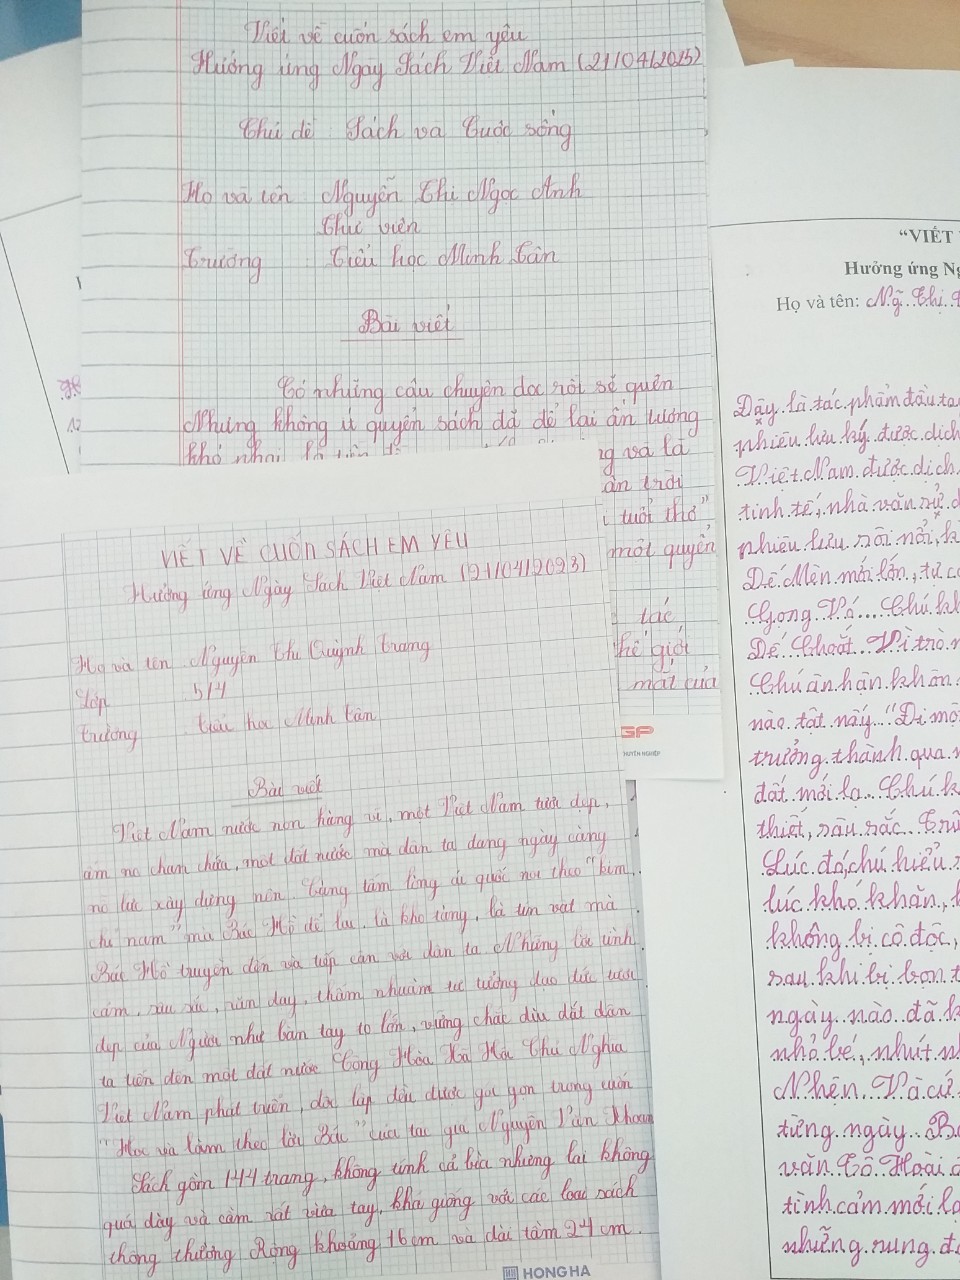 Viết về cuốn sách em yêu
Hưởng ứng Ngày Sách Việt Nam (21/04/2023)
Chủ đề Sách và Cuộc sống
Họ và tên Nguyễn Thị Ngọc Anh
Thư viện
Trường Tiểu học Minh Tân
Bài viết
Có những câu chuyện đọc rồi sẽ quên
Nhưng không ít quyển sách đã để lại ấn tượng
khó phai
và là
tuổi thơ"
một quyển
tác
thế giới
mắt của
GP
VIẾT VỀ CUỐN SÁCH EM YÊU
Hưởng ứng Ngày Sách Việt Nam (21/04/2023)
Họ và tên Nguyễn Thị Quỳnh Trang
Lớp 5/4
Trường Tiểu học Minh Tân
Bài viết
Việt Nam nước non hùng vĩ, một Việt Nam tươi đẹp,
ấm no chan chứa, một đất nước mà dân ta đang ngày càng
nỗ lực xây dựng nên. Cùng tấm lòng ái quốc noi theo "kim
chỉ nam" mà Bác Hồ để lại, là kho tàng, là tín vật mà
Bác Hồ truyền dẫn và tiếp cận với dân ta. Những lời tình
cảm, sâu sắc, răn dạy, thấm nhuần tư tưởng đạo đức tươi
đẹp của Người như bàn tay to lớn, vững chắc dìu dắt dân
ta tiến đến một đất nước Cộng Hòa Xã Hội Chủ Nghĩa
Việt Nam phát triển, độc lập đều được gói gọn trong cuốn
"Học và làm theo lời Bác" của tác giả Nguyễn Văn Khoan
Sách gồm 144 trang, không tính cả bìa nhưng lại không
quá dày và cầm rất vừa tay, khá giống với các loại sách
thông thường. Rộng khoảng 16cm và dài tầm 24cm.
HONG HA
"VIẾT
Hưởng ứng Ng
Họ và tên: Ng. Thị
Đây là tác phẩm đầu ta
phiêu lưu ký được dịch
Việt Nam được dịch
tinh tế, nhà văn sử d
phiêu lưu sôi nổi, k
Dế Mèn mới lớn, tự c
Gọng Vó... Chú k
Dế Choắt. Vì trò n
Chú ân hận khôn
nào tật nấy. "Đi mộ
trưởng thành qua n
đất mới lạ. Chú k
thiết, sâu sắc. Trũ
Lúc đó, chú hiểu r
lúc khó khăn, k
không bị cô độc,
sau khi bị bọn t
ngày nào đã k
nhỏ bé, nhút nh
Nhện. Và cứ
từng ngày. B
văn Tô Hoài đ
tình cảm mới lạ
những rung đ